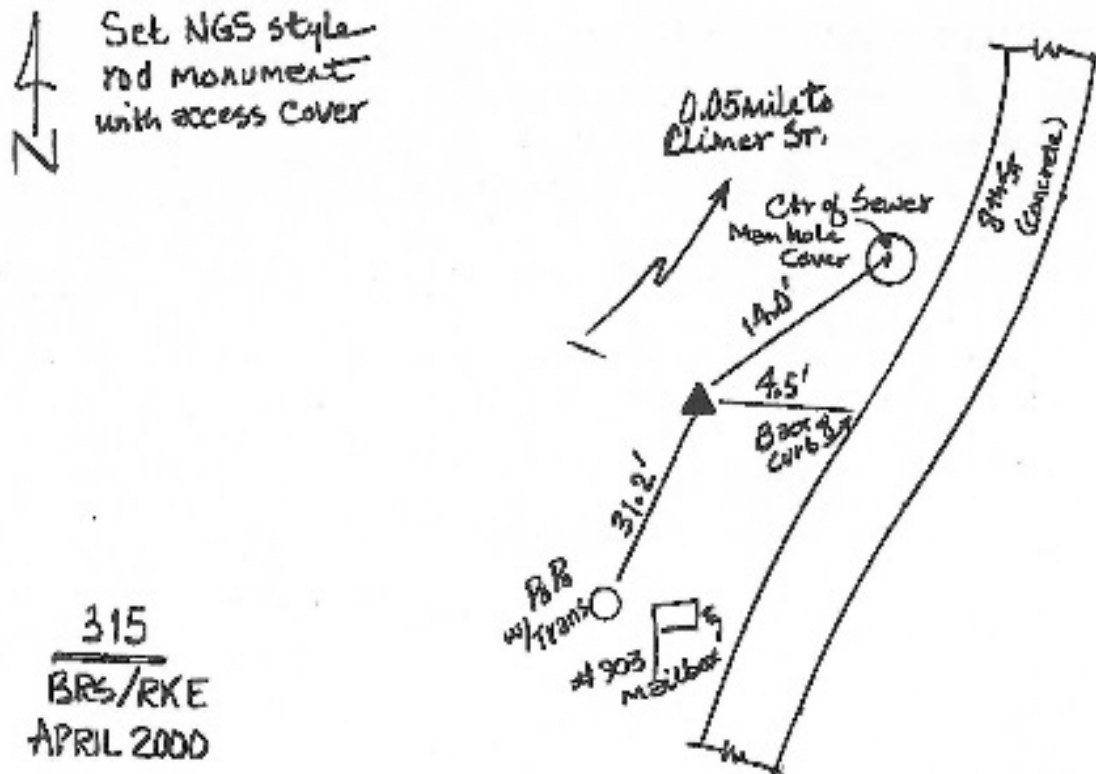 Set NGS style
rod monument
with access cover
N
0.05 mile to
Climer St.
Ctr of Sewer
Manhole
Cover
8th St
(Concrete)
14.0'
4.5'
Back of
curb
31.2'
P.P.
w/Trans
#903
Mailbox
315
BRS/RKE
APRIL 2000